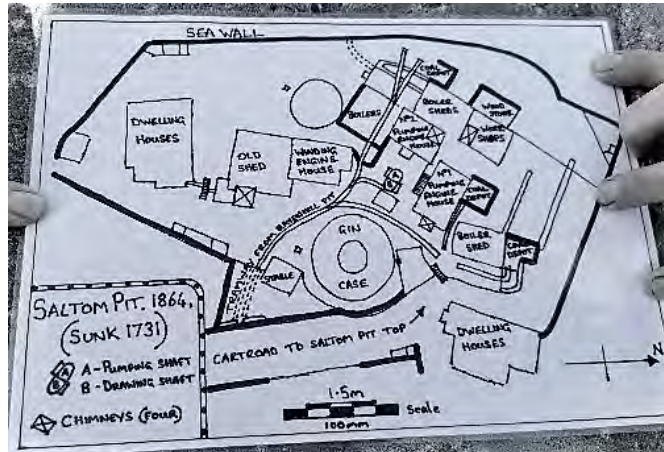 SEA WALL
DWELLING
HOUSES
OLD
SHED
WINDING
ENGINE
HOUSE
BOILERS
COAL
DEPOT
BOILER
SHEDS
Nº2
PUMPING
ENGINE
HOUSE
WOOD
STORE
WORK
SHOPS
Nº1
PUMPING
ENGINE
HOUSE
COAL
DEPOT
BOILER
SHED
COAL
DEPOT
A
B
GIN
CASE
STABLE
FROM RAVENHILL PIT
DWELLING
HOUSES
CARTROAD TO SALTOM PIT TOP
N
SALTOM PIT. 1864.
(SUNK 1731)
A - PUMPING SHAFT
B - DRAWING SHAFT
CHIMNEYS (FOUR)
1.5m
Scale
100mm